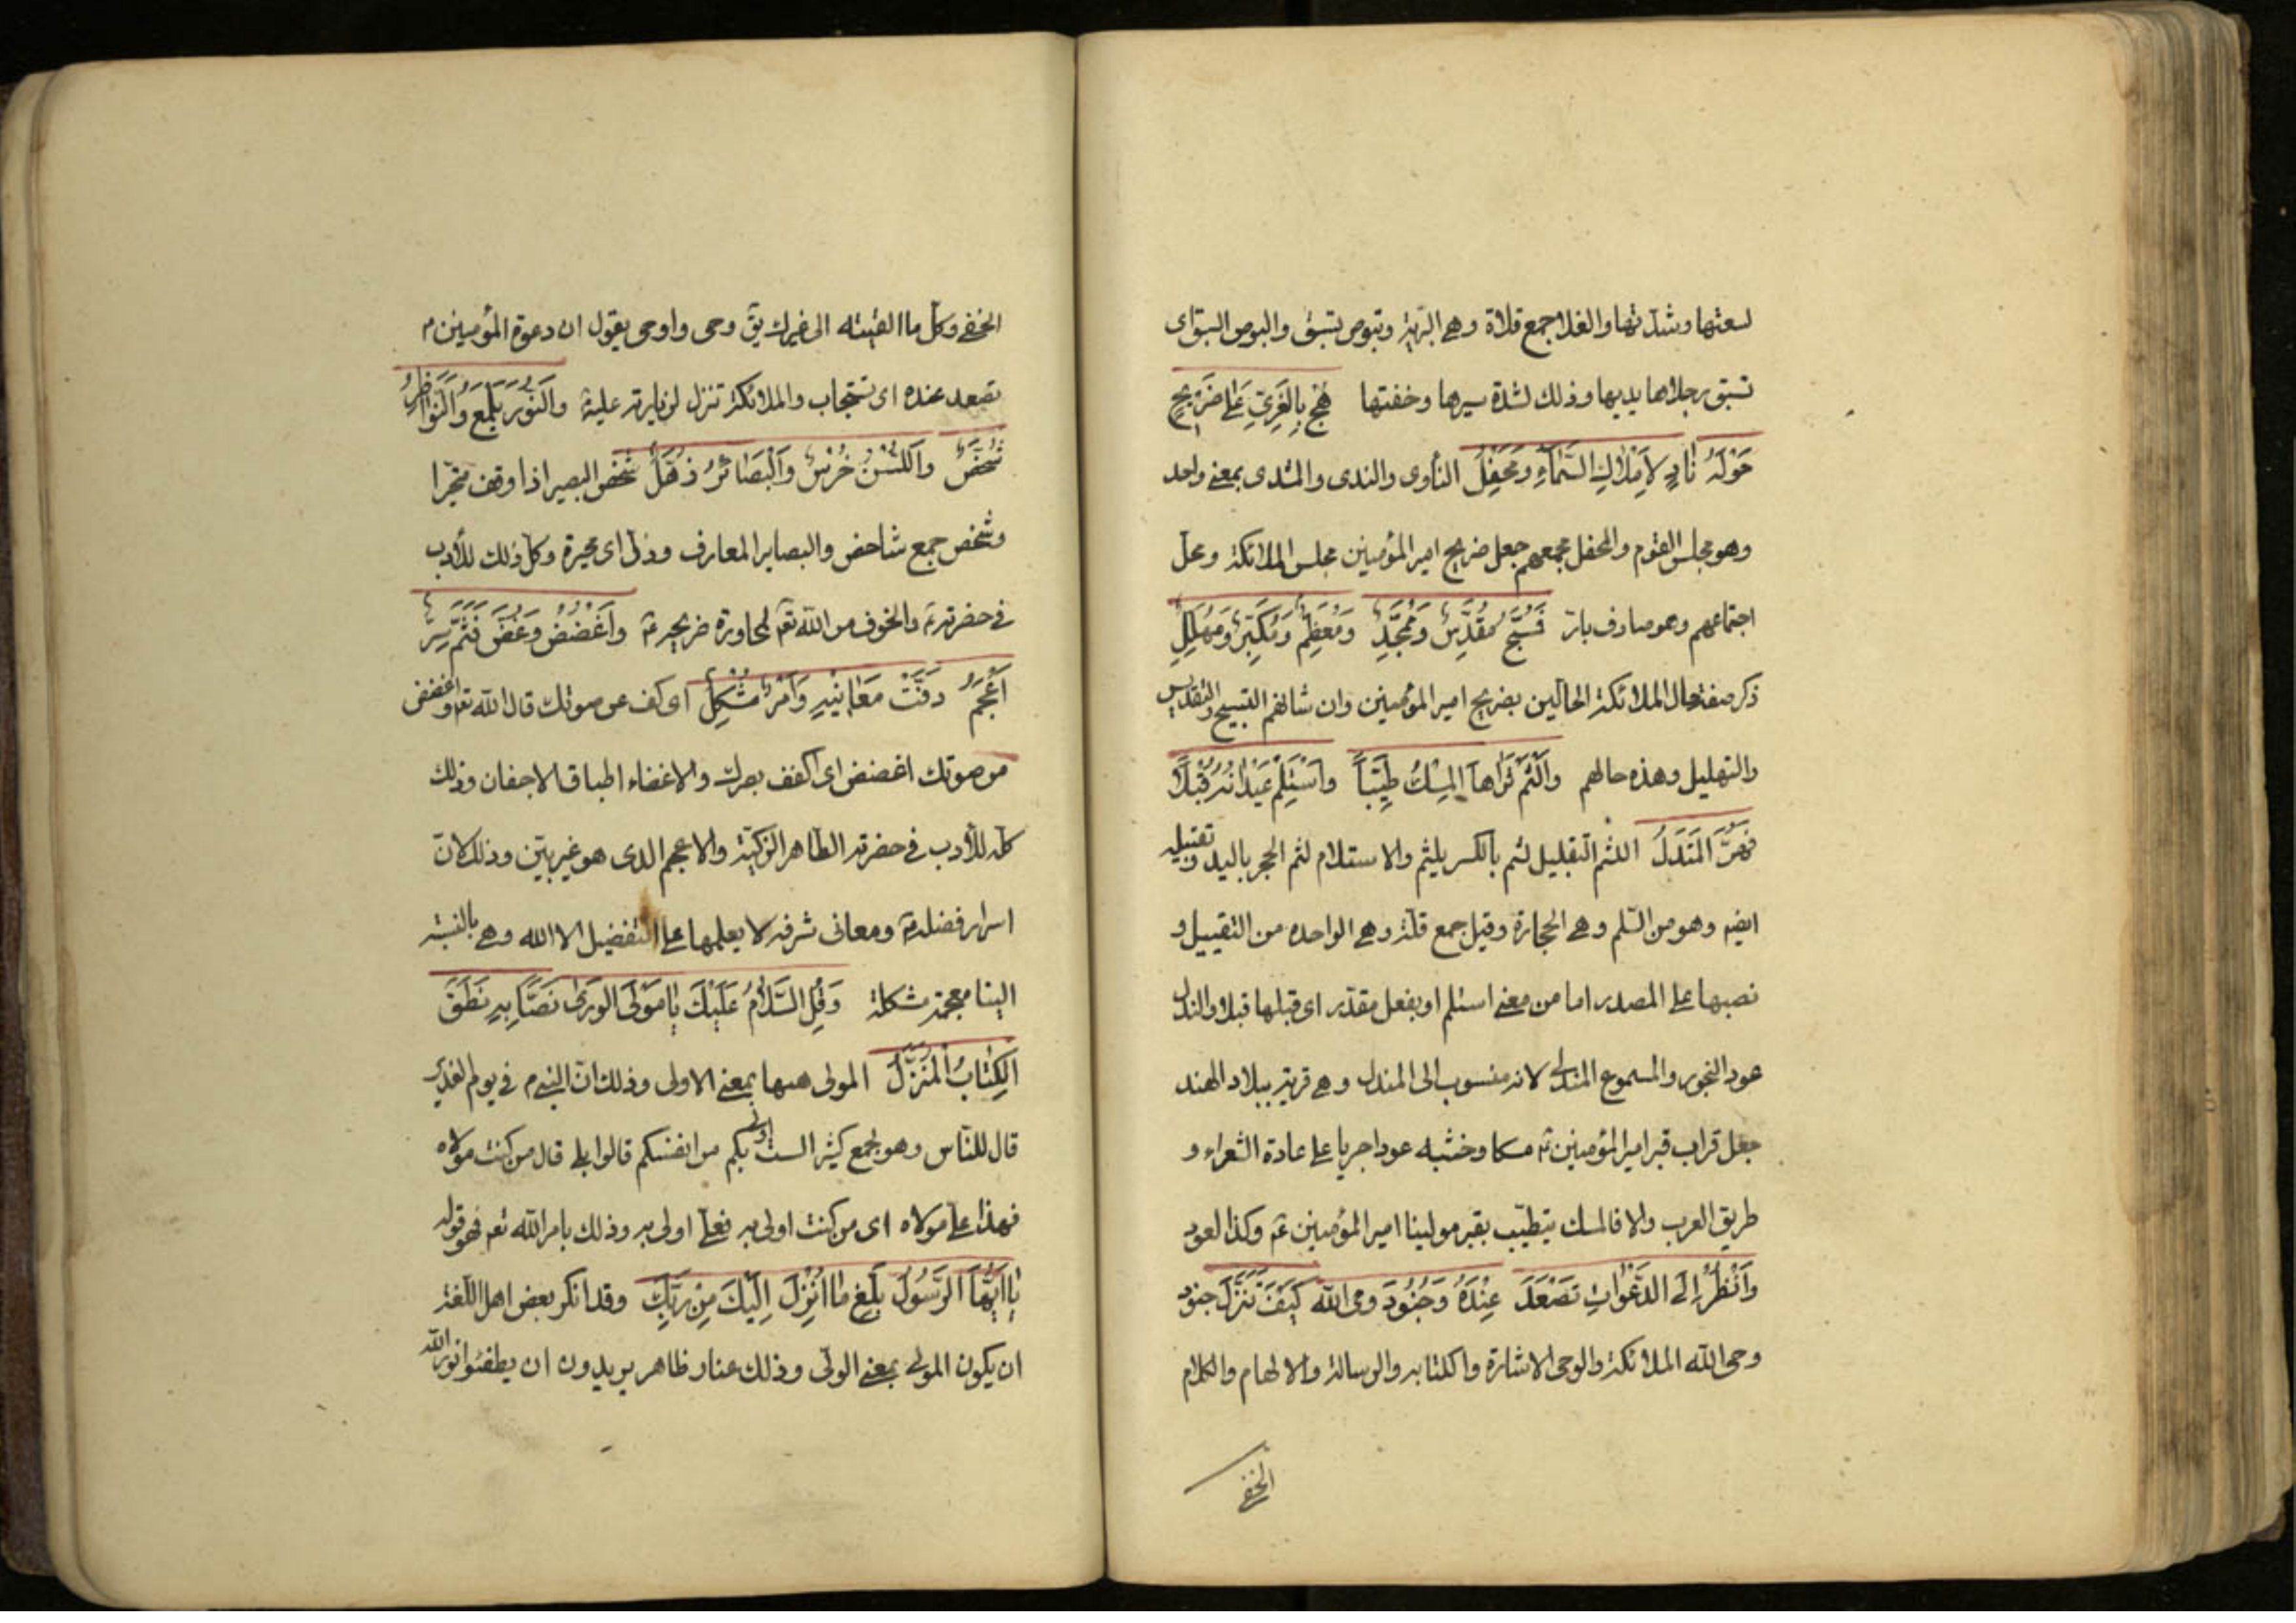 لسعتها وشدتها والفلا جمع فلاة وهى البرية وتبوص تسبق والبوص السبق اى
تسبق رجلاها يديها وذلك لشدة سيرها وخفتها عُج بِالغَرِيِّ عَلى ضَرِيحٍ
حَوْلَهُ نادٍ لِأَمْلاكِ السَّماءِ وَمَحْفِلُ النادى والندى والمنتدى بمعنى واحد
وهو مجلس القوم والمحفل مجمعهم جعل ضريح امير المؤمنين مجلس الملائكة ومحل
اجتماعهم وهو صادف بار فَمُسَبِّحٌ وَمُقَدِّسٌ وَمُمَجِّدٌ وَمُعَظِّمٌ وَمُكَبِّرٌ وَمُهَلِّلٌ
ذكر صفة حال الملائكة الحالين بضريح امير المؤمنين وان شانهم التسبيح والتقديس
والتهليل وهذه حالهم وَالْثِمْ ثَراها المِسْكَ طِيباً وَاسْتَلِمْ عِيدانَهُ قُبَلاً
فَهُنَّ المَنْدَلُ اللثم التقبيل لثم بالكسر يلثم والاستلام لثم الحجر باليد وتقبيله
ايضا وهو من السلم وهى الحجارة وقيل جمع قبلة وهى الواحده من التقبيل و
نصبها على المصدر اما من معنى استلم او بفعل مقدر اى قبلها قبلا والمندل
عود البخور والمسموع المندلى لانه منسوب الى المندل وهى قرية ببلاد الهند
جعل تراب قبر امير المؤمنين ع مسكا وخشبه عودا جريا على عادة الشعراء و
طريق العرب والا فالمسك يتطيب بقبر مولينا امير المؤمنين ع وكذا العود
وَانْظُرْ إِلَى الدَّعَواتِ تَصْعَدُ عِنْدَهُ وَجُنُودَ وحى الله كَيْفَ تَنَزَّلُ جنود
وحى الله الملائكة والوحى الاشارة والكتابه والرسالة والالهام والكلام
الخفى
الخفى وكل ما القيته الى غيرك يق وحى واوحى يقول ان دعوة المؤمنين
تصعد عنده اى تستجاب والملائكة تنزل لزيارته عليه وَالنُّورُ يَلْمَعُ وَالنَّواظِرُ
شُخَّصٌ وَاللُّسْنُ خُرْسٌ وَالبَصائِرُ ذُهَّلُ شخص البصير اذا وقف متحيرا
وشخص جمع شاخص والبصاير المعارف وذهل اى محيرة وكل ذلك للأدب
فى حضرته والخوف من الله تع لمجاورة ضريحه ع وَاغْضُضْ وَغُضَّ فَثَمَّ سِرٌّ
أَعْجَمُ دَقَّتْ مَعانِيهِ وَأَمْرٌ مُشْكِلُ اى كف عن صوتك قال الله تع واغضض
من صوتك اغضض اى اكفف بصرك والاغضاء اطباق الاجفان وذلك
كله للأدب فى حضرته الطاهر الزكية والاعجم الذى هو غير بين وذلك لان
اسرار فضله ع ومعانى شرفه لا يعلمها على التفضيل الا الله وهى بالنسبة
الينا معجمة مشكلة وَقُلِ السَّلامُ عَلَيْكَ يا مَوْلَى الوَرى نَصّاً بِهِ نَطَقَ
الكِتابُ المُنَزَّلُ المولى ههنا بمعنى الاولى وذلك ان النبى م فى يوم الغدير
قال للناس وهو لجمع كثير الست اولى بكم من انفسكم قالوا بلى قال من كنت مولاه
فهذا على مولاه اى من كنت اولى به فعلى اولى به وذلك بامر الله تع فهو قوله
يا أَيُّهَا الرَّسُولُ بَلِّغْ ما أُنْزِلَ إِلَيْكَ مِنْ رَبِّكَ وقد انكر بعض اهل اللغة
ان يكون المولى بمعنى الولى وذلك عناد ظاهر يريدون ان يطفئوا نور الله